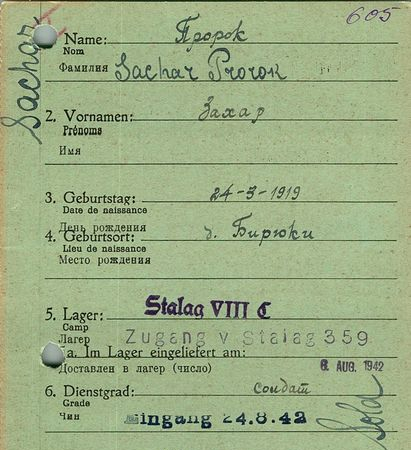 605
Sachar
1. Name: Пророк
Nom
Фамилия Sachar Prorok
2. Vornamen: Захар
Prénoms
Имя
3. Geburtstag: 24-3-1919
Date de naissance
День рождения
4. Geburtsort: д. Бирюки
Lieu de naissance
Место рождения
5. Lager: Stalag VIII C
Camp
Лагерь Zugang v Stalag 359
5a. Im Lager eingeliefert am:
Доставлен в лагерь (число) 6. AUG. 1942
6. Dienstgrad: солдат
Grade
Чин Eingang 24.8.42
Sold